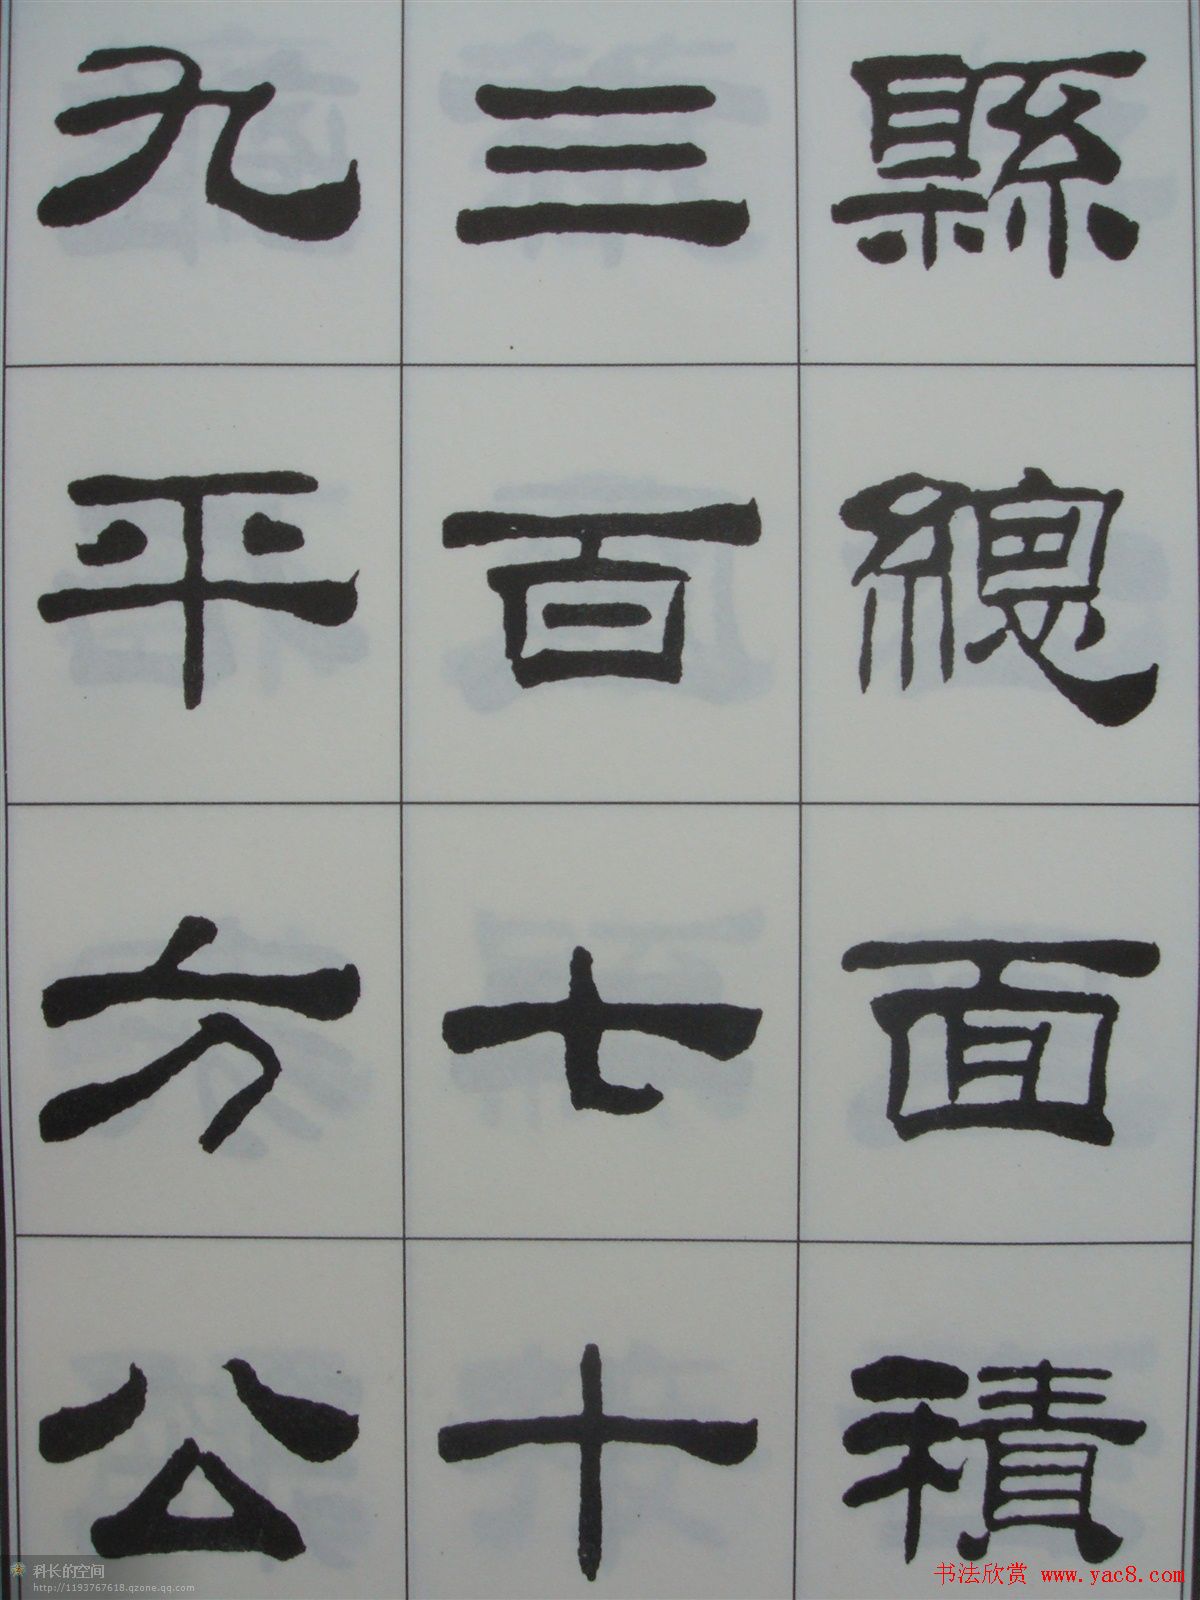 縣總面積
三百七十
九平方公
科长的空间
http://1193767618.qzone.qq.com
书法欣赏 www.yac8.com